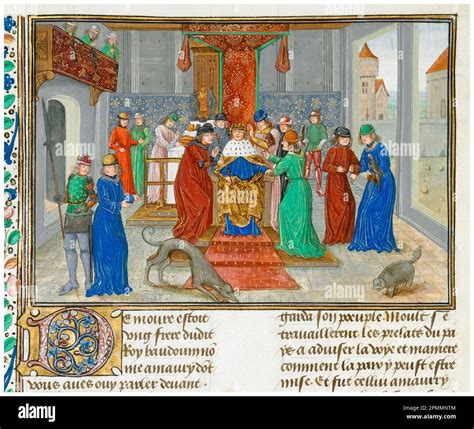 De moure estoit
ung frere dudit
Roy baudouin no
me amaury dōt
vous aves ouy parler devant.
garda son peuple Moult se
travaillerent les prelas du pa
a adviser la voye et maniere
comment la paix y peust estre
mise. Et fut cellui amaury
alamy - 2PMMNTM